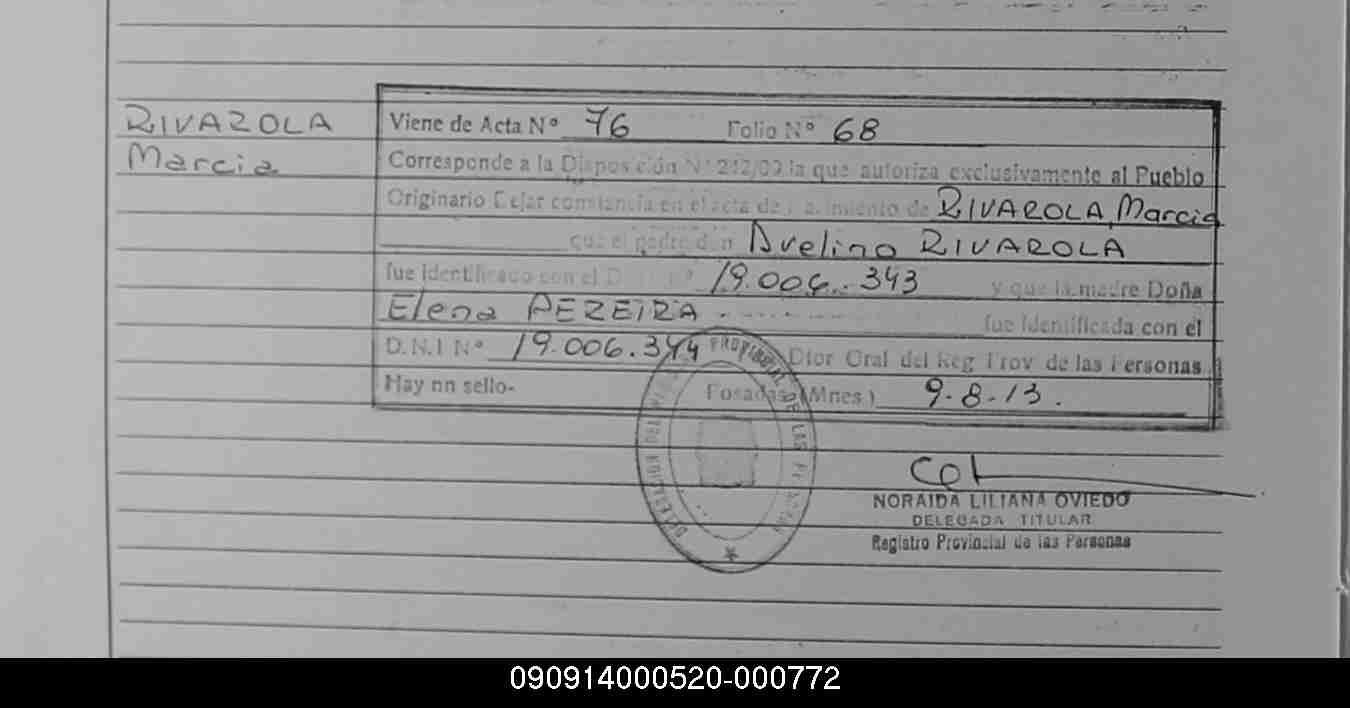 RIVAROLA
Marcia
Viene de Acta Nº 76 Folio Nº 68
Corresponde a la Disposición Nº 212/09 la que autoriza exclusivamente al Pueblo
Originario Dejar constancia en el acta de nacimiento de RIVAROLA, Marcia
que el padre don Avelino RIVAROLA
fue identificado con el D 19.006.343 y que la madre Doña
Elena PEREIRA fue identificada con el
D.N.I Nº 19.006.344 Dtor Gral del Reg Prov de las Personas
Hay un sello- Posadas (Mnes) 9-8-13.
PROVINCIAL DE LAS PERSONAS
NORAIDA LILIANA OVIEDO
DELEGADA TITULAR
Registro Provincial de las Personas
090914000520-000772